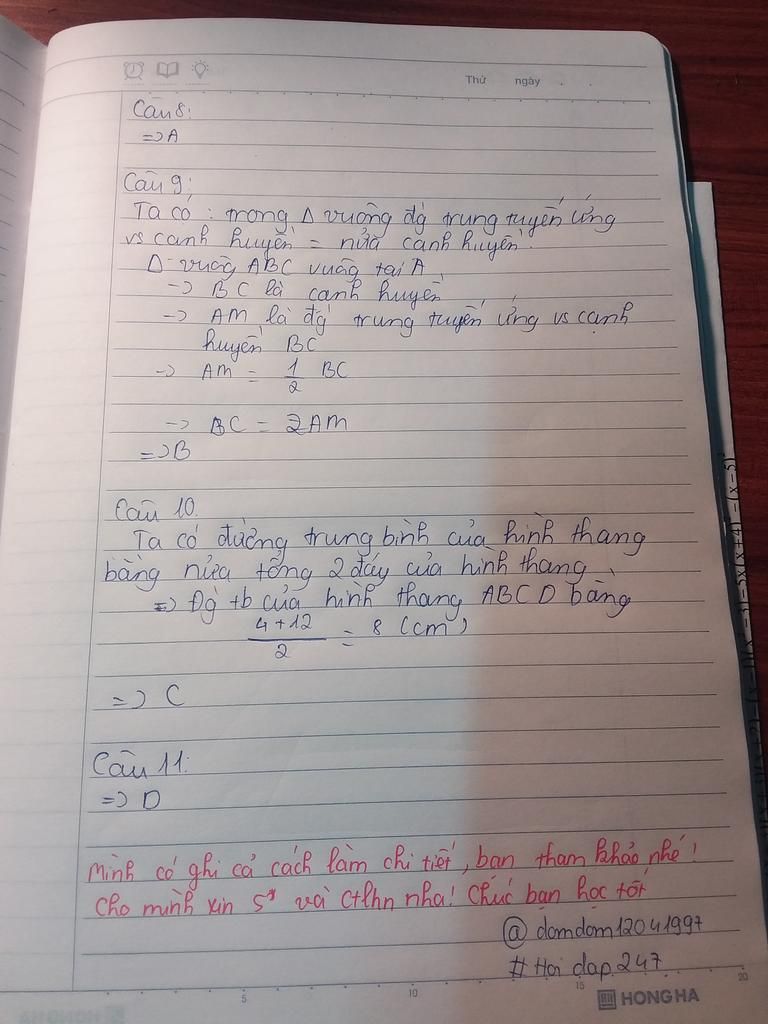 Thứ ngày . .
Câu 8:
=> A
Câu 9:
Ta có : trong Δ vuông đg trung tuyến ứng
vs cạnh huyền = nửa cạnh huyền.
Δ vuông ABC vuông tại A
-> BC là cạnh huyền
-> AM là đg trung tuyến ứng vs cạnh
huyền BC
-> AM = 1/2 BC
-> BC = 2AM
=> B
Câu 10.
Ta có đường trung bình của hình thang
bằng nửa tổng 2 đáy của hình thang
=> Đg tb của hình thang ABCD bằng
(4+12)/2 = 8 (cm)
=> C
Câu 11:
=> D
Mình có ghi cả cách làm chi tiết, bạn tham khảo nhé!
Cho mình xin 5* và ctlhn nha! Chúc bạn học tốt
@ domdom12041997
# Hoi dap 247
5 10 15 20
HONG HA